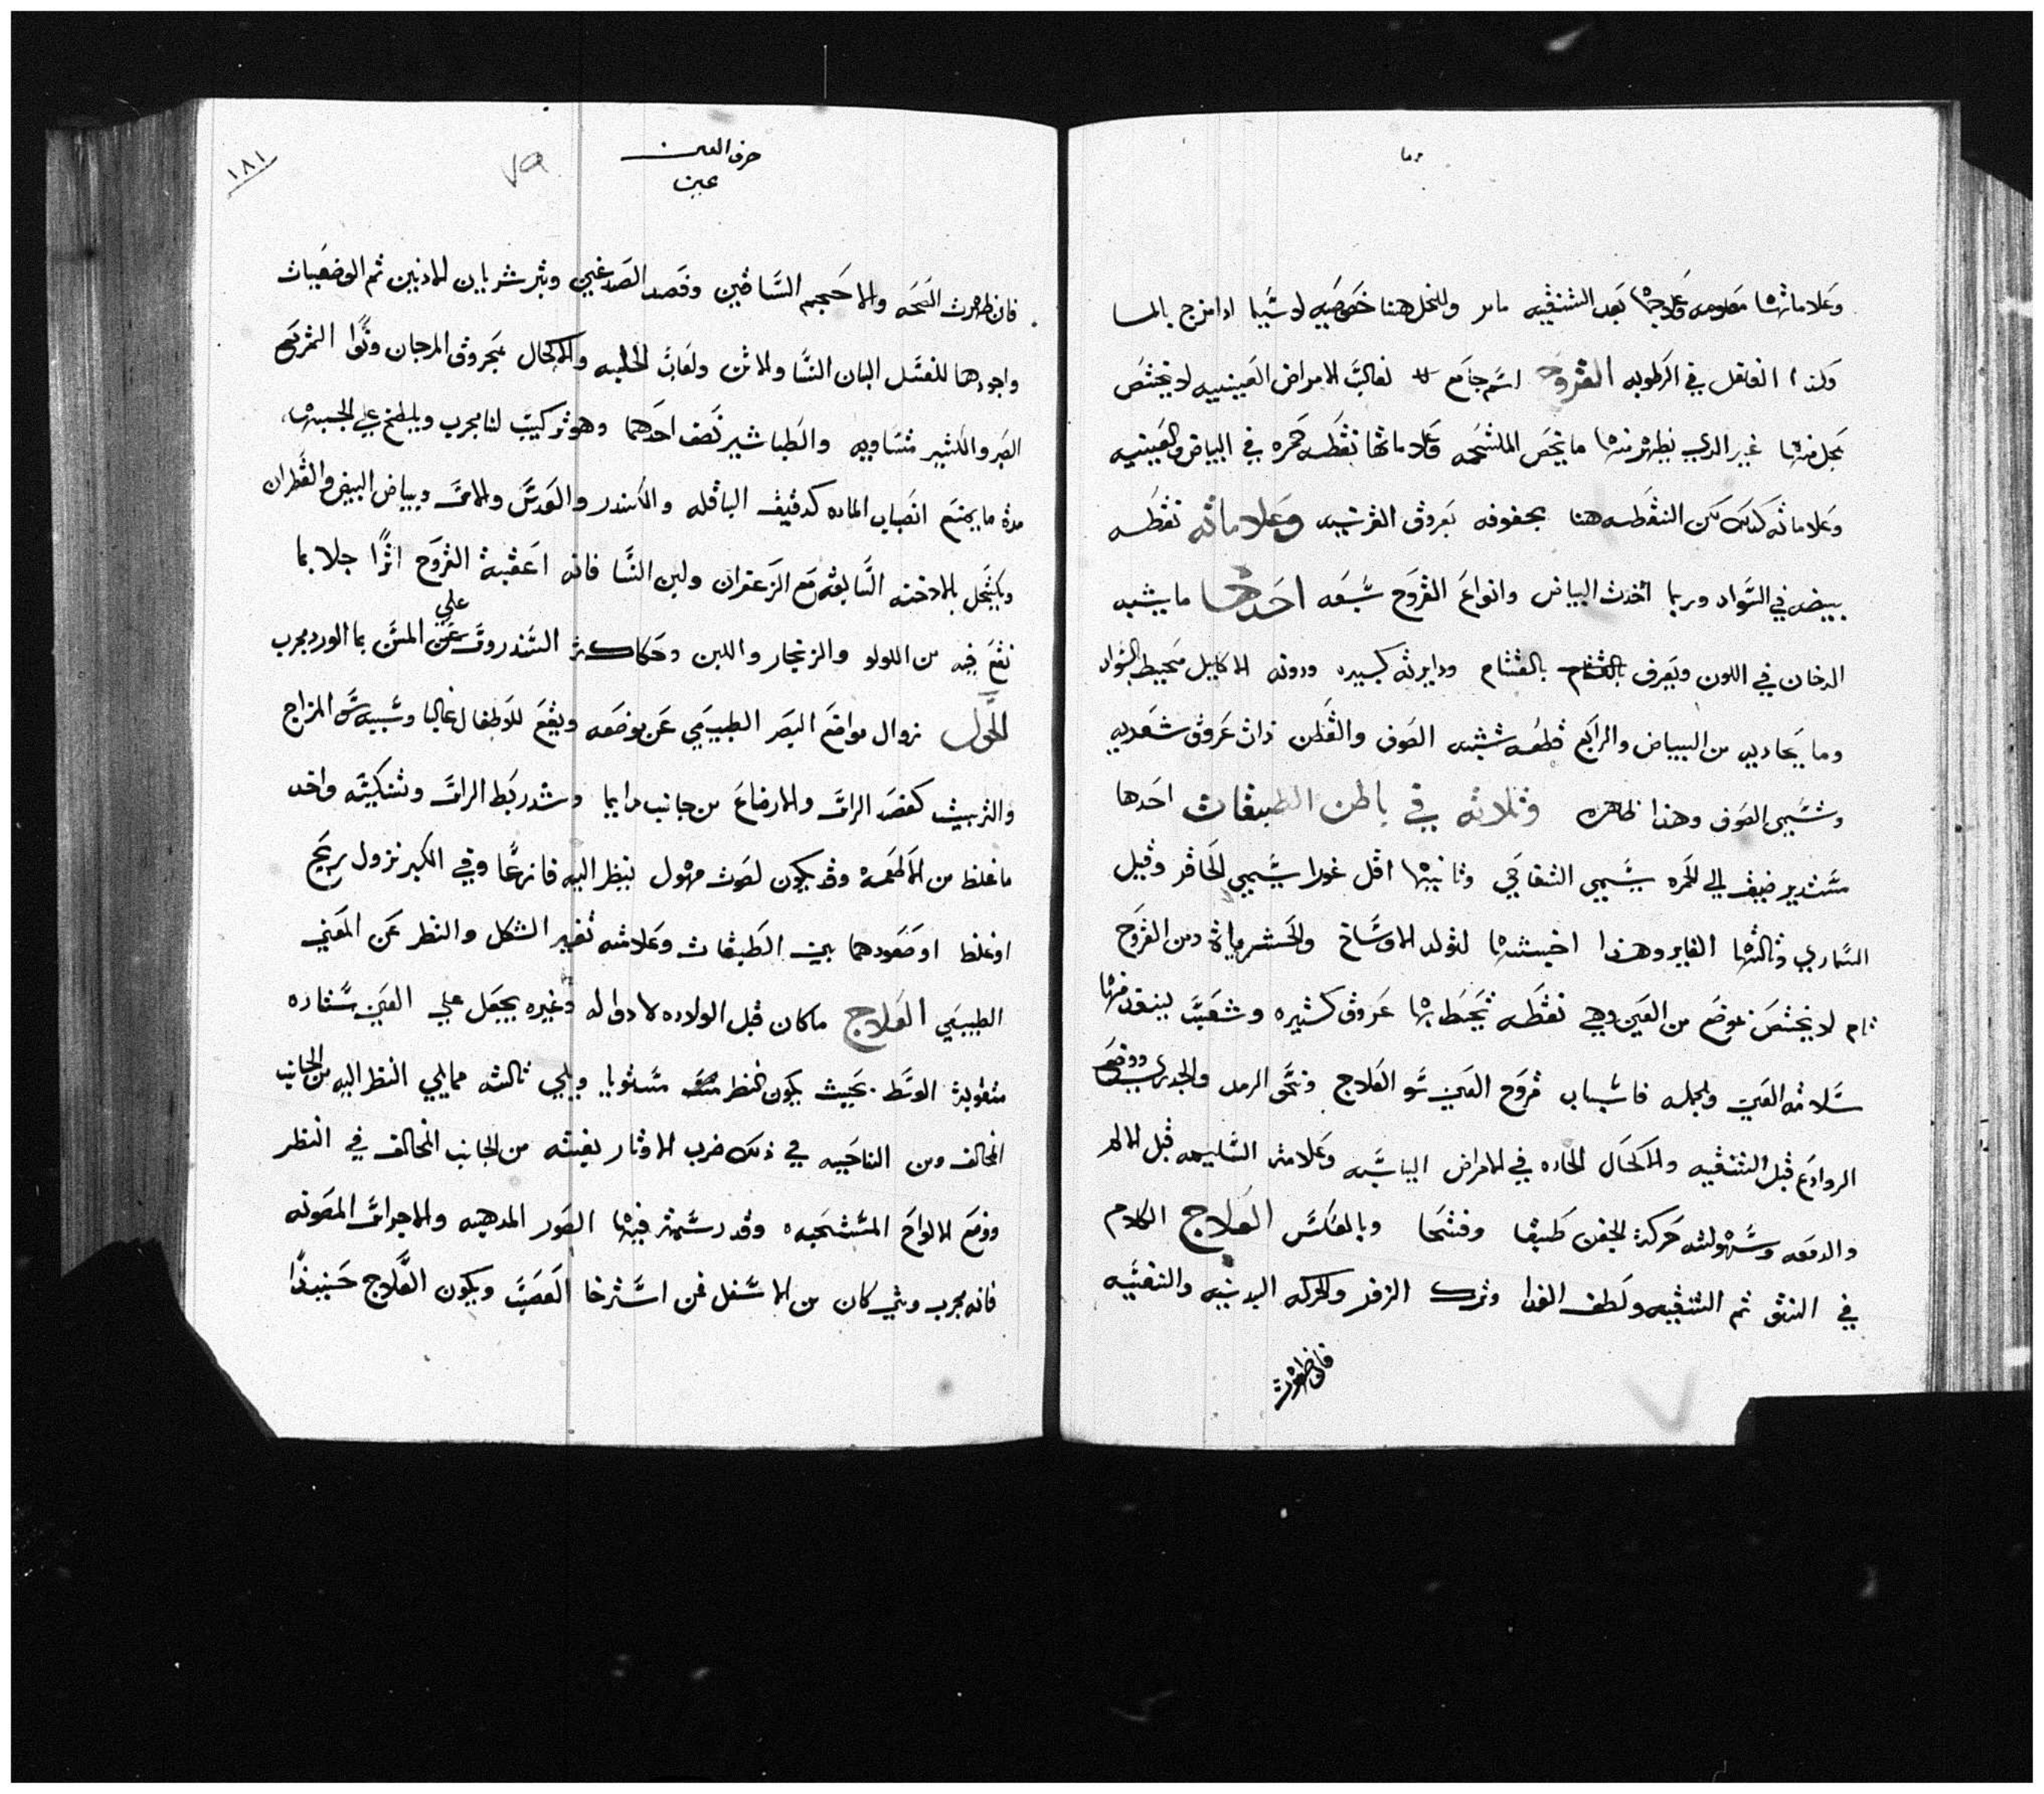 وعلاماتها معلومه وعلاجها بعد التنقيه مامر وللخل هنا خصوصيه لاسيما اذا مزج بالما
وكذا الفلفل في الرطوبه القروح اسم جامع لغالب الامراض العينيه لا يختص
بجل منها غير الذي يظهر منها ما يخص الملتحمه وعلاماتها نقطه حمره في البياض والعينيه
وعلاماته كذلك لكن النقطه هنا بعروق القرنيه وعلاماته نقطه
بيضه في السواد وربما اخذت البياض وانواع القروح سبعه احدها ما يشبه
الدخان في اللون ويعرف بالقتام ودايرته كبيره ودونه الاكليل محيط بالسواد
وما يحاديه من البياض والرابع قطعه تشبه الصوف والقطن ذات عروق شعريه
وتسمى الصوفي وهذا ظاهره وثلاثه في باطن الطبقات احدها
مستدير ضيق الي الحمره يسمي النفاخي وثانيها اقل غورا يسمي الحافر وقيل
السماري وثالثها الغاير وهذا اخبثها لتولد الاوساخ والخشكريشات ومن القروح
لا يختص بموضع من العين وهي نقطه تحيط بها عروق كثيره وشعب منها
سلامه العين وبالجمله فاسباب قروح العين سو العلاج وحمي الرمد والجدري ووضع
الروادع قبل التنقيه والاكحال الحاده في الامراض اليابسه وعلامته السليمه قبل الالم
والدمعه وسهولته حركة الجفن طبقا وفتحا وبالعكس العلاج الكلام
في النتو ثم التنقيه ولطف الغدا وترك الزفر والحركه البدنيه والنفسيه
فان ظهرت
حرف العين
عين
٧٩
١٨١
فان ظهرت الصحه والا حجم الساقين وفصد الصدغين وبتر شريان الاذنين ثم الوضعيات
واجودها للغسل البان النسا والاتن ولعاب الحلبه والاكحال بمحروق المرجان ونوا التمر مع
الصبر والكثير متساويه والطباشير نصف احدهما وهو تركيب لنا مجرب ويلطخ علي الجبهه
مدة ما يمنع انصباب الماده كدقيق الباقله والكندر والعدس والاس وبياض البيض والقطران
ويكتحل بالادخنه السابقه مع الزعفران ولبن النسا فانه اعقبة القروح اثرا جلا بما
نفع فيه من اللولو والزنجار واللبن وحكاكة السندروس علي المسن بما الورد مجرب
الحول زوال مواضع البصر الطبيعي عن موضعه ويقع للاطفال غالبا وسببه المزاج
والتربيت كفصد الراس والارضاع من جانب دايما وشد ربط الراس وتنكيسه واخد
ما غلظ من الاطعمه وقد يكون لصوت مهول ينظر اليه فازعا وفي الكبر نزول ريح
او غلظ او صعودهما بين الطبقات وعلامته تغير الشكل والنظر عن المعني
الطبيعي العلاج ما كان قبل الولاده لا دوا له وغيره يجعل علي العين ستاره
مثقوبة الوسط بحيث يكون النظر مستويا ويلي ثالثه مما يلي النظر اليه من الجانب
المخالف ومن الناحيه في ذلك ضرب الاوتار بغيته من الجانب المخالف في النظر
ووضع الالواح المستحبه وقد رسمت فيها الصور المدهبه والاجراس المصوته
فانه مجرب ومتي كان من الاسفل فمن استرخا العصب ويكون العلاج حينيذا